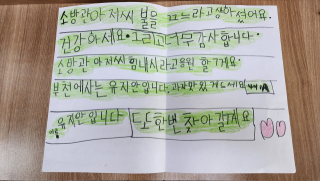 소방관아저씨 불을 끄느라고생하셨어요.
건강하세요. 그리고너무감사합니다.
소방관 아저씨 힘내시라고응원 할게요.
부천에사는 유지안입니다 과자맛있게드세요
유지안입니다 도 한번 찾아갈게요